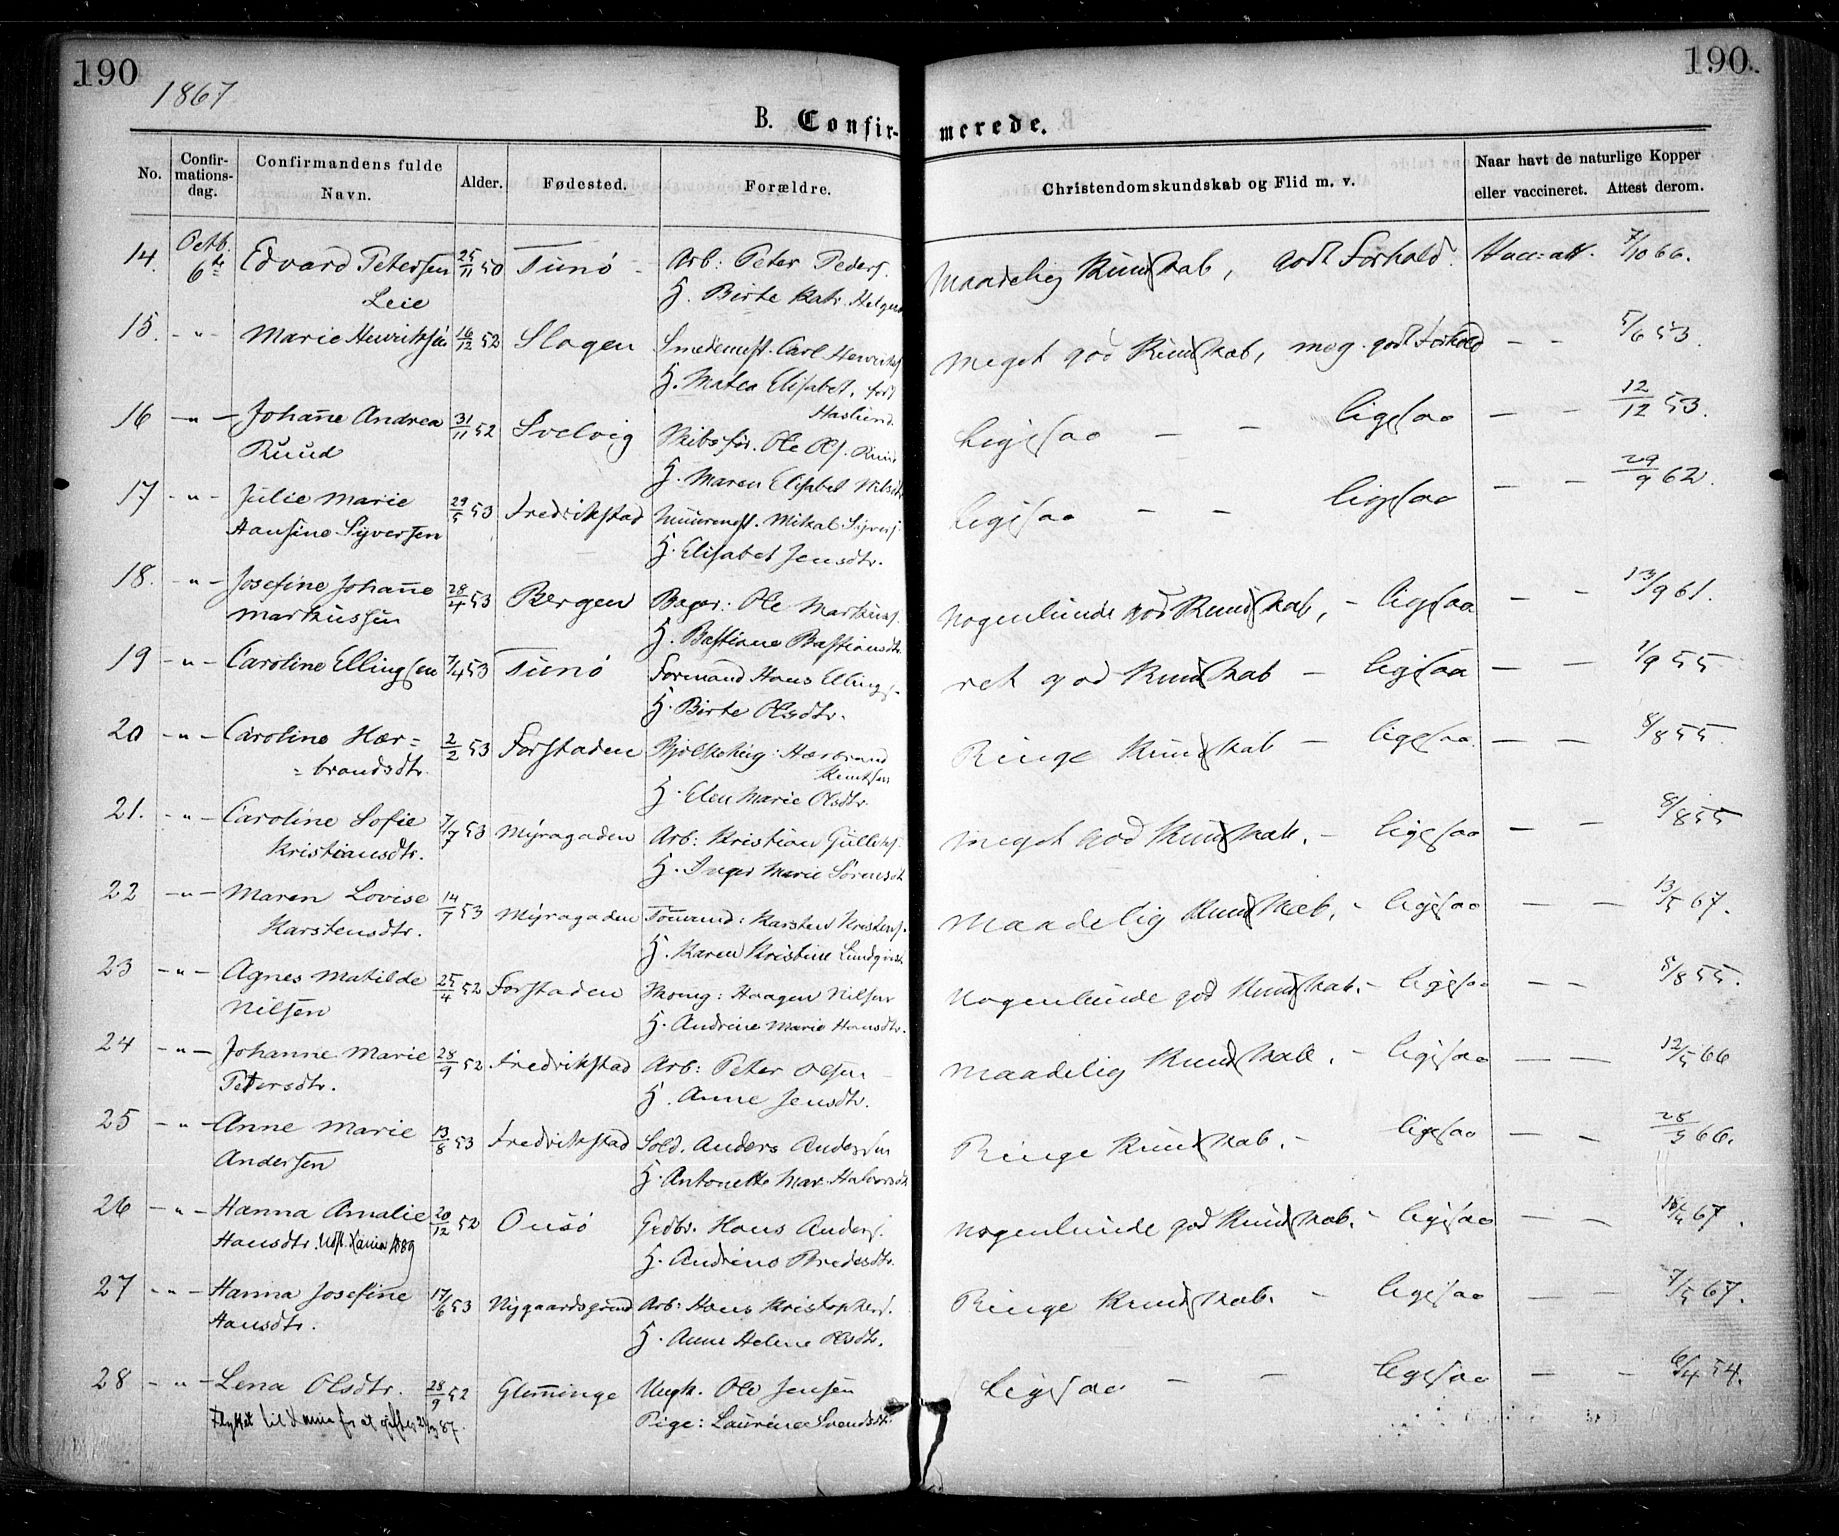 190
190.
1867
B. Confir- merede.
No.
Confir-
mations-
dag.
Confirmandens fulde
Navn.
Alder.
Fødested.
Forældre.
Christendomskundskab og Flid m. v.
Naar havt de naturlige Kopper
eller vaccineret. Attest derom.
14. Octb. 6te Edvard Petersen 25/11 50 Tunø - Arb: Peter Peders. Maadelig Kundskab, godt Forhold. Vacc: att. 7/10 66.
Leie H. Birte Katr. Helges
15. - " - Marie Henriksen 16/12 52 Slagen Smedemest. Carl Henriks. Meget god Kundskab, meg. godt Forhold - - 5/6 53.
H. Matea Elisabet, født
Haslund.
16 - " - Johanne Andrea 31/11 52 Svelvig Skibsfør. Ole Ols. Ruud Ligesaa - - ligesaa - - 12/12 53.
Ruud H. Maren Elisabet Nilsdtr
17 - " - Julie Marie 29/5 53 Fredrikstad Muurmest. Mikal Syvers. Ligesaa - - ligesaa - - 29/9 62.
Hansine Syversen H. Elisabet Jensdtr.
18. - " - Josefine Johanne 28/4 53 Bergen Bager: Ole Markus. Nogenlunde god Kundskab, - ligesaa - - 13/9 61.
Markussen H. Bastiane Bastiansdtr.
19 - " - Caroline Ellingsen 7/4 53 Tunø Formand Hans Ellings. ret god Kundskab - ligesaa - - 1/9 55
H. Birte Olsdtr.
20 - " - Caroline Hær= 2/2 53 Forstaden Hærbrand Ringe Kundskab - ligesaa - - 8/8 55.
=brandsdtr. Knutsen
H. Elen Marie Olsdtr.
21. - " - Caroline Sofie 7/7 53 Myragaden Arb: Kristian Gulliks. meget god Kundskab. - ligesaa - - 8/8 55
Kristiansdtr. H. Inger Marie Sørensdtr
22 - " - Maren Lovise 14/7 53 Myragaden Tømmand: Karsten Kristens. Maadelig Kundskab, - ligesaa - - 13/5 67.
Karstensdtr. H. Karen Kristine Lundqvist
23 - " - Agnes Matilde 25/4 52 Forstaden Haagen Nilsen Nogenlunde god Kundskab. - ligesaa - - 8/8 55.
Nilsen H. Andrine Marie Hansdtr.
24 - " - Johanne Marie 28/9 52. Fredrikstad Arb: Peter Olsen Maadelig Kundskab. - ligesaa - - 12/5 66
Petersdtr. H. Anne Jensdtr.
25 - " - Anne Marie 13/8 53 Fredrikstad Sold. Anders Andersen Ringe Kundskab. - ligesaa - - 28/9 66.
Andersen H. Antonette Mar. Halvorsdtr
26 - " - Hanna Amalie 20/12 52 Onsø Grdbr. Hans Anders. Nogenlunde god Kundskab. - ligesaa - - 16/4 67.
Hansdtr. Udst. 1889 H. Andrine Bredesdtr.
27 - " - Hanna Josefine 17/6 53 Nygaardsgrund Arb: Hans Kristophers. Ringe Kundskab. - ligesaa - - 7/5 67.
Hansdtr. H. Anne Helene Olsdtr.
28 - " - Lena Olsdtr. 28/9 52 Glemminge Ungk. Ole Jensen Ligesaa - - ligesaa - - 6/4 54.
til for at giftes 87. Pige: Laurine Svendsdtr.